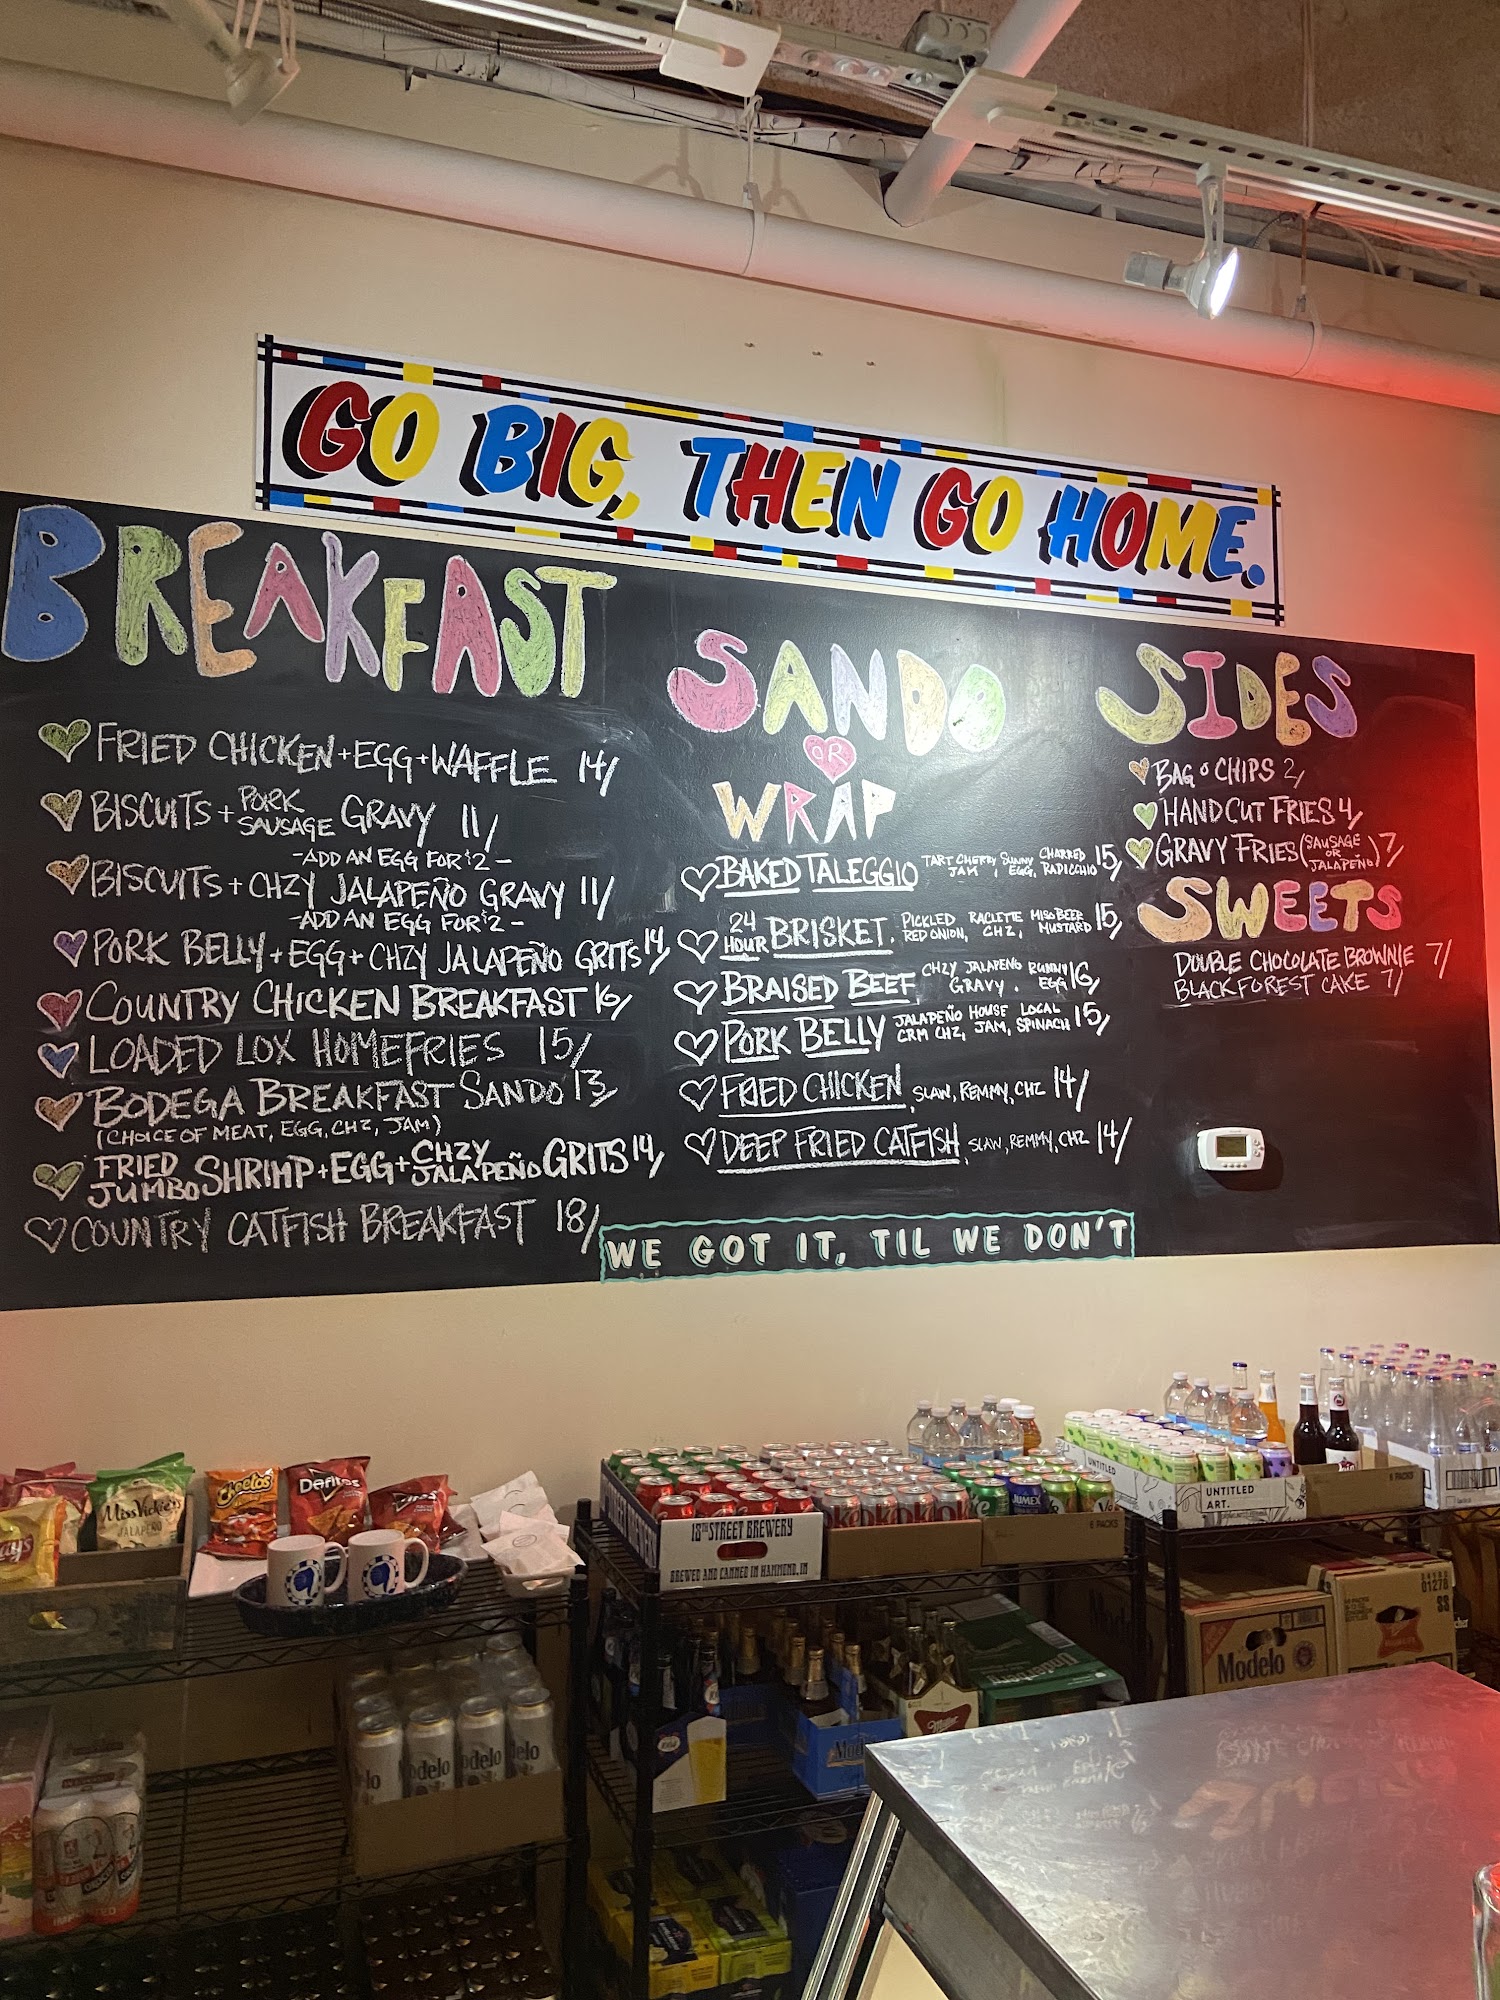 GO BIG, THEN GO HOME.
BREAKFAST
FRIED CHICKEN + EGG + WAFFLE 14/
BISCUITS + PORK SAUSAGE GRAVY 11/
- ADD AN EGG FOR $2 -
BISCUITS + CHZY JALAPEÑO GRAVY 11/
- ADD AN EGG FOR $2 -
PORK BELLY + EGG + CHZY JALAPEÑO GRITS 14/
COUNTRY CHICKEN BREAKFAST 16/
LOADED LOX HOMEFRIES 15/
BODEGA BREAKFAST SANDO 13/
(CHOICE OF MEAT, EGG, CHZ, JAM)
FRIED JUMBO SHRIMP + EGG + CHZY JALAPEÑO GRITS 14/
COUNTRY CATFISH BREAKFAST 18/
SANDO
OR
WRAP
BAKED TALEGGIO TART CHERRY JAM, SUNNY EGG, CHARRED RADICCHIO 15/
24 HOUR BRISKET. PICKLED RED ONION, RACLETTE CHZ, MISO BEER MUSTARD 15/
BRAISED BEEF CHZY JALAPENO GRAVY. RUNNY EGG 16/
PORK BELLY JALAPEÑO CRM CHZ, HOUSE JAM, LOCAL SPINACH 15/
FRIED CHICKEN, SLAW, REMMY, CHZ 14/
DEEP FRIED CATFISH, SLAW, REMMY, CHZ 14/
WE GOT IT, TIL WE DON'T
SIDES
BAG O CHIPS 2/
HAND CUT FRIES 4/
GRAVY FRIES (SAUSAGE OR JALAPEÑO) 7/
SWEETS
DOUBLE CHOCOLATE BROWNIE 7/
BLACK FOREST CAKE 7/
Lays
Miss Vickie's
JALAPEÑO
Cheetos
Doritos
18TH STREET BREWERY
BREWED AND CANNED IN HAMMOND, IN
JUMEX
6 PACKS
UNTITLED
UNTITLED
ART.
6 PACKS
Modelo
01270
SS
Miller
Modelo
delo
elo